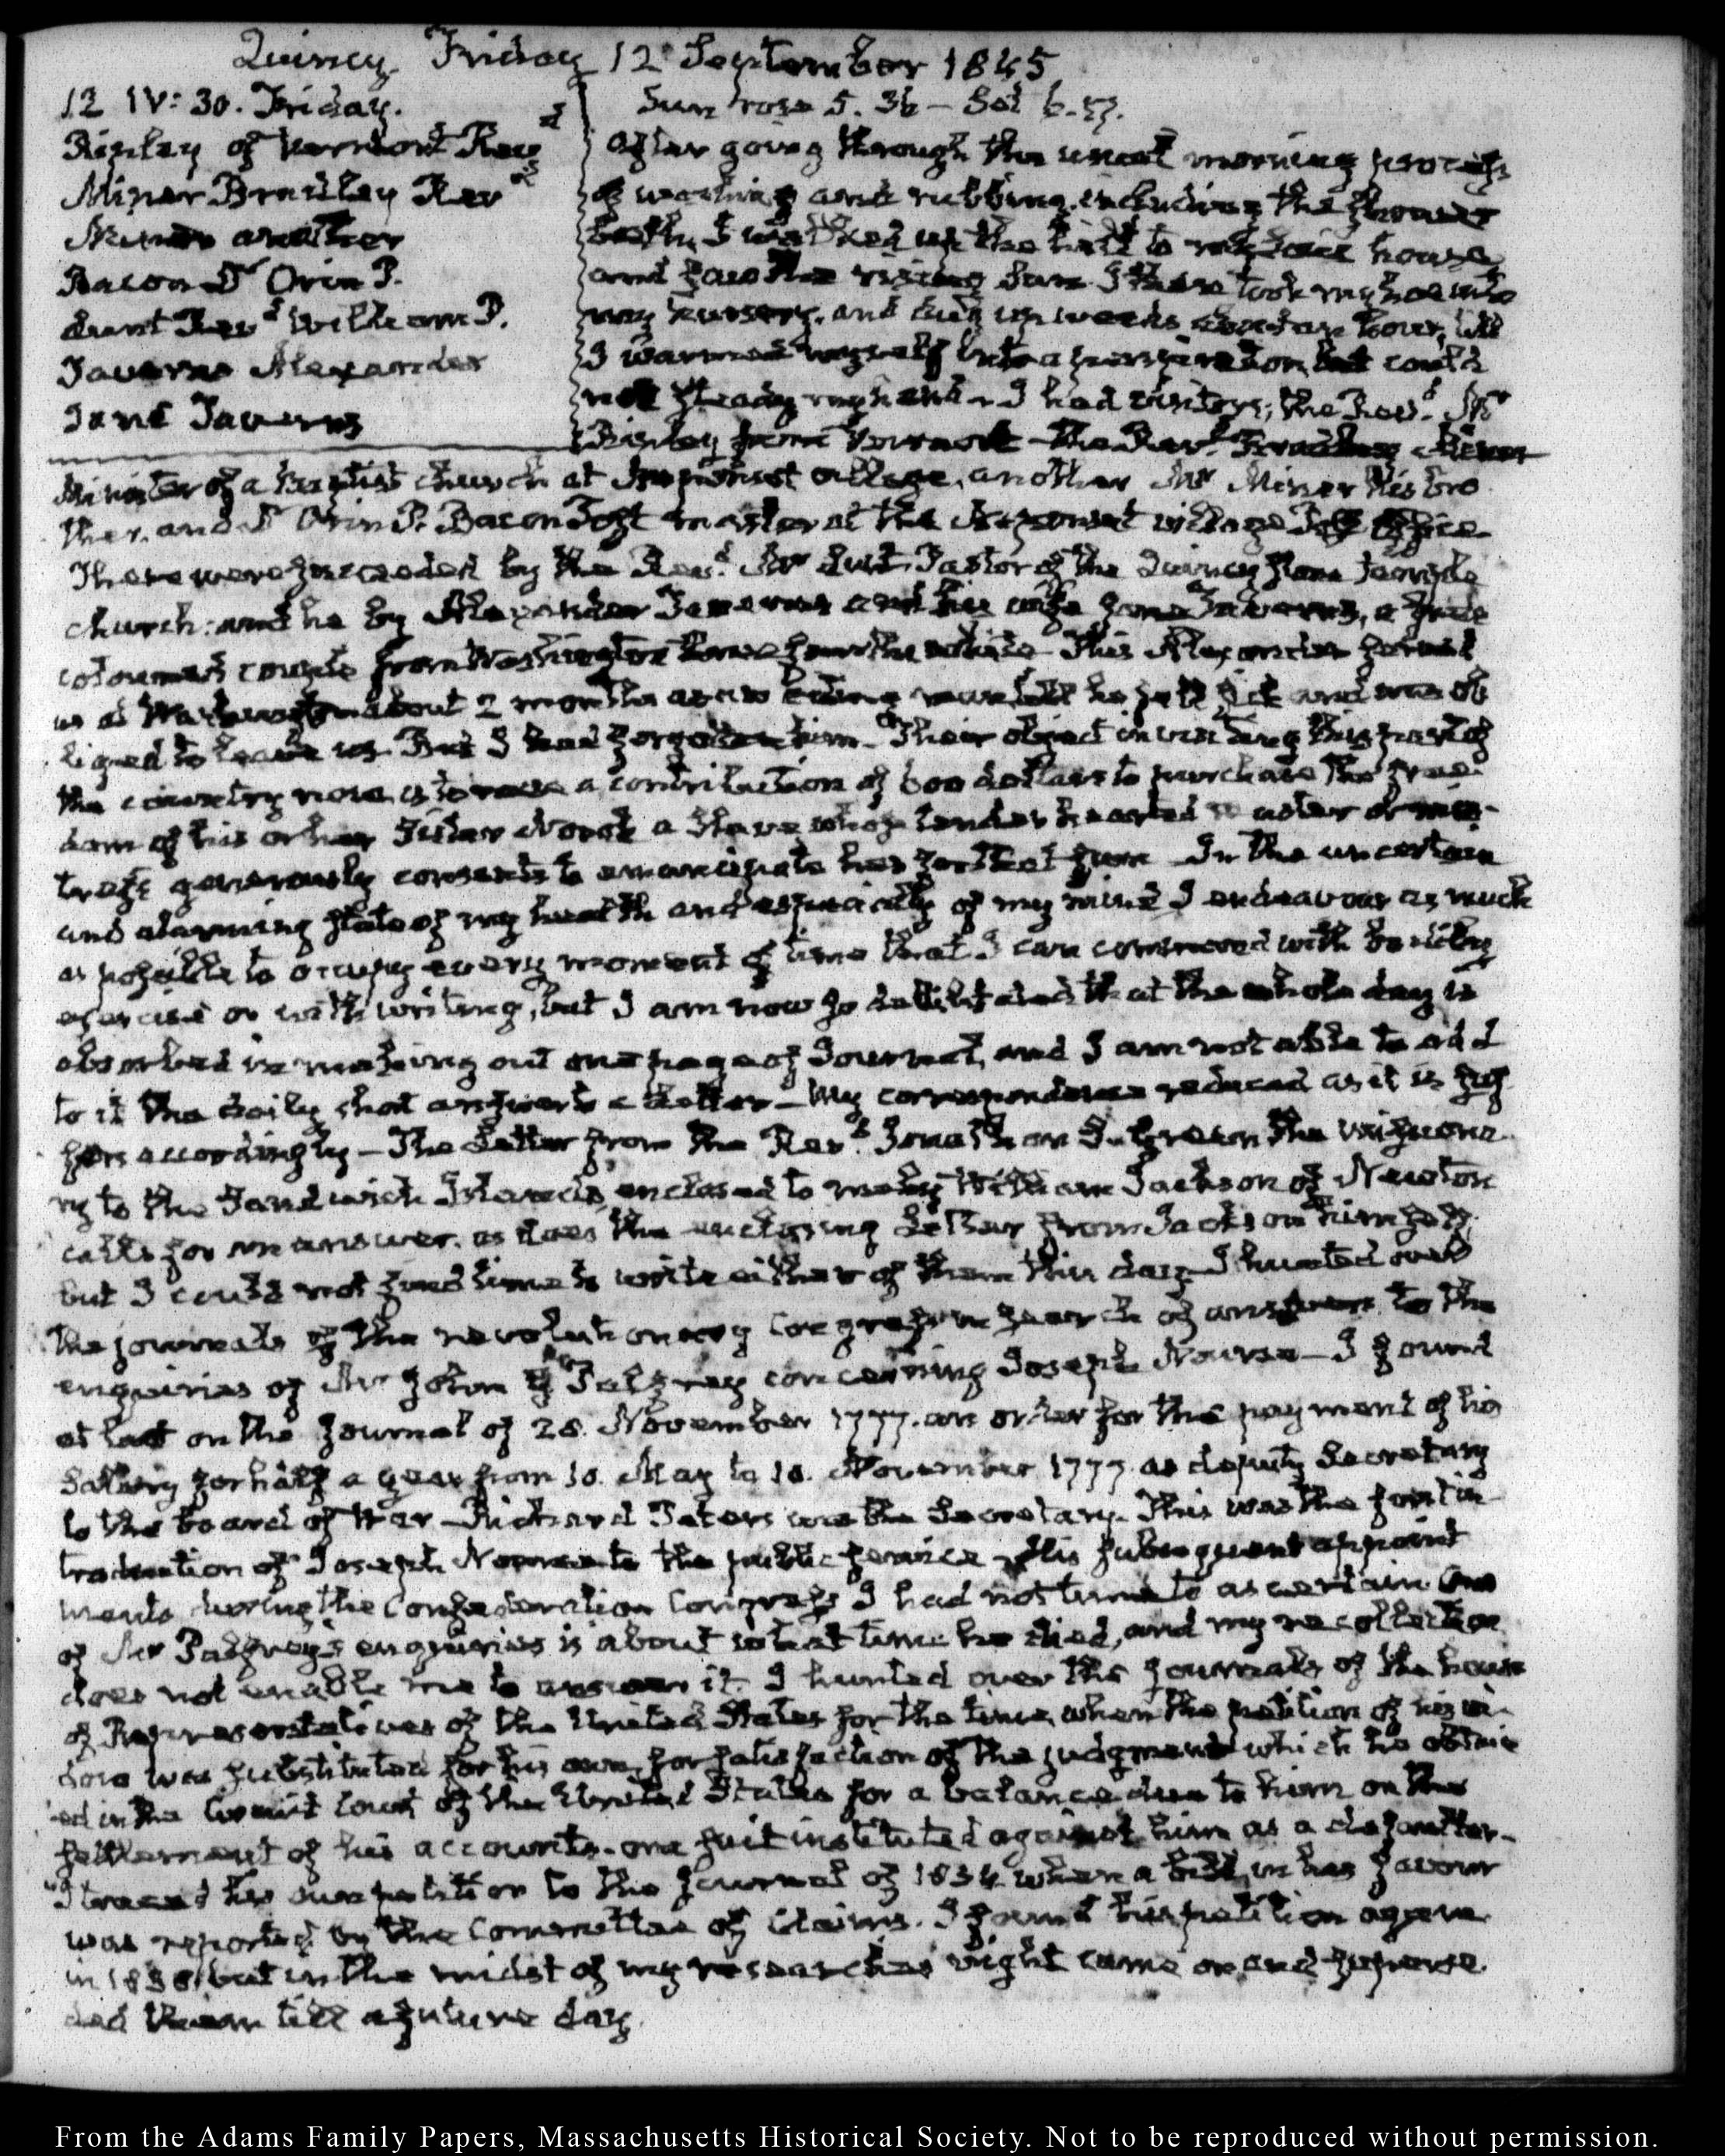 Quincy Friday 12 September 1845
12 IV:30. Friday.
Ripley of Vermont Revd
Miner Bradley Revd
Miner another
Bacon Dr Orin P.
Lunt Revd William P.
Taverns Alexander
Jane Taverns
Sun rose 5. 36 — Set 6.
After going through the usual morning process
of washing and rubbing, including the shower
bath, I walked up the hill to
and saw the rising Sun. I then took my hoe into
my nursery, and dug up weeds hour, till
I warmed myself into a perspiration but could
not steady my hand — I had visitors; the Revd Mr
Ripley from Vermont — the Revd Bradley Miner
Minister of a baptist church at Neponset village, another Mr Miner his bro
ther, and Dr Orin P. Bacon Post master at the Neponset village Post Office
These were preceded by the Revd Mr Lunt Pastor of the Quincy stone temple
church: and he by Alexander Taverns and his wife Jane Taverns, a free
coloured couple from Washington This Alexander served
us at Washington about 2 months as a till he fell sick and was ob
liged to leave us. But I had forgotten him. Their object in visiting this part of
the country now is to raise a contribution of 600 dollars to purchase the free
dom of his or her Sister a slave whose tender hearted master or mis-
tress generously consents to emancipate her for that sum. In the uncertain
and alarming state of my health and especially of my mind I endeavour as much
as possible to occupy every moment of time that I can command with bodily
exercise or with writing, but I am now so debilitated that the whole day is
absorbed in making out one page of Journal, and I am not able to add
to it the daily short answer to a letter — My correspondence reduced as it is suf
fers accordingly — The Letter from the Revd Jonathan S. Green the missiona
ry to the Sandwich Islands, enclosed to me by William Jackson of Newton
calls for an answer. as does the enclosing Letter from Jackson himself;
but I could not find time to write either of them this day — I hunted over
the journals of the revolutionary Congress in search of answers to the
enquiries of Mr John G Palfrey concerning Joseph Nourse — I found
at last on the Journal of 28. November 1777. an order for the payment of his
Sallary for half a year from 10. May to 10. November 1777. as deputy Secretary
to the board of War — Richard Peters was the Secretary. This was the first in
troduction of Joseph Nourse to the public service. His subsequent appoint
ments during the Confederation Congress I had not time to ascertain. One
of Mr Palfrey's enquiries is about what time he died, and my recollection
does not enable me to answer it. I hunted over the Journals of the house
of Representatives of the United States for the time when the petition of his wi-
dow was substituted for his own, for satisfaction of the judgment which he obtain
ed in the Circuit Court of the United States for a balance due to him on the
settlement of his accounts. one suit instituted against him as a defaulter.
I traced his own petition to the Journal of 1834 when a bill, in his favour
was reported by the Committee of Claims. I found his petition again
in but in the midst of my researches night came on and suspen
ded them till a future day.
From the Adams Family Papers, Massachusetts Historical Society. Not to be reproduced without permission.